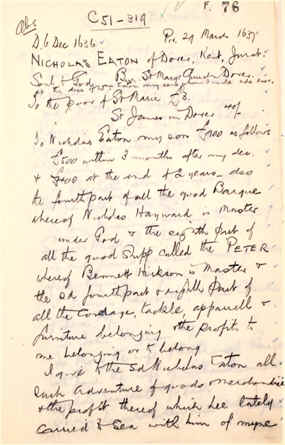 F. 76
C51-319
D. 6 Dec 1636. Pr. 29 March 1637
NICHOLAS EATON of Dover, Kent, Jurat.
Soul to God. Bur. St Mary's Church Dover.
To the poor of St Marie £3.
St James in Dover 40/-
To Nicholas Eaton my son £900 as follows
£500 within 3 months after my dec.
& £400 at the end of 2 years. also
the fourth part of all the good Barque
whereof Nicholas Hayward is Master
under God & the eighth part of
all the good Shipp called the PETER
whereof Bennett Hickson is Master &
the sd fourth part & eighth part of
all the Cordage, tackle, apparell &
furniture belonging & the profit to
me belonging or to belong
I give to the sd Nicholas Eaton all
such adventure of goods merchandise
& the profit thereof which hee lately
carried to Sea with him of myne